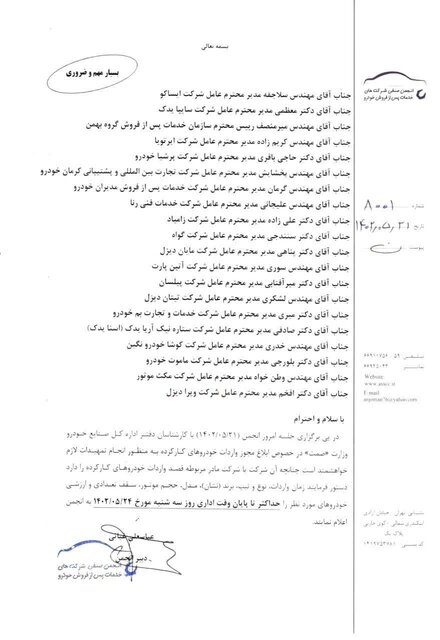 بسمه تعالی
بسیار مهم و ضروری
انجمن صنفی شرکت های
خدمات پس از فروش خودرو
شماره ۸۰۰۱
تاریخ ۱۴۰۲،۰۵،۲۱
پیوست
جناب آقای مهندس سلاجقه مدیر محترم عامل شرکت ایساکو
جناب آقای دکتر معظمی مدیر محترم عامل شرکت سایپا یدک
جناب آقای مهندس میرمنصف رییس محترم سازمان خدمات پس از فروش گروه بهمن
جناب آقای مهندس کریم زاده مدیر محترم عامل شرکت ایرتویا
جناب آقای دکتر حاجی باقری مدیر محترم عامل شرکت پرشیا خودرو
جناب آقای مهندس بخشایش مدیر محترم عامل شرکت تجارت بین المللی و پشتیبانی کرمان خودرو
جناب آقای مهندس گرمان مدیر محترم عامل شرکت خدمات پس از فروش مدیران خودرو
جناب آقای مهندس علیجانی مدیر محترم عامل شرکت خدمات فنی رنا
جناب آقای دکتر علی زاده مدیر محترم عامل شرکت زامیاد
جناب آقای دکتر سنندجی مدیر محترم عامل شرکت گواه
جناب آقای دکتر پناهی مدیر محترم عامل شرکت مایان دیزل
جناب آقای مهندس سوری مدیر محترم عامل شرکت آتین پارت
جناب آقای دکتر میرآفتابی مدیر محترم عامل شرکت پیلسان
جناب آقای مهندس لشگری مدیر محترم عامل شرکت تیتان دیزل
جناب آقای دکتر میری مدیر محترم عامل شرکت خدمات و تجارت بم خودرو
جناب آقای دکتر صادقی مدیر محترم عامل شرکت ستاره نیک آریا یدک (اسنا یدک)
جناب آقای مهندس خدری مدیر محترم عامل شرکت کوشا خودرو نگین
جناب آقای دکتر بلورچی مدیر محترم عامل شرکت ماموت خودرو
جناب آقای مهندس وطن خواه مدیر محترم عامل شرکت مکث موتور
جناب آقای دکتر افخم مدیر محترم عامل شرکت ویرا دیزل
با سلام و احترام
در پی برگزاری جلسه امروز انجمن (۱۴۰۲/۰۵/۲۱) با کارشناسان دفتر اداره کل صنایع خودرو
وزارت «صمت» در خصوص ابلاغ مجوز واردات خودروهای کارکرده به منظور انجام تمهیدات لازم
خواهشمند است چنانچه آن شرکت یا شرکت مادر مربوطه قصد واردات خودروهای کارکرده را دارد
دستور فرمایند زمان واردات، نوع و تیپ، برند (نشان)، مدل، حجم موتور، سقف تعدادی و ارزشی
خودروهای مورد نظر را حداکثر تا پایان وقت اداری روز سه شنبه مورخ ۱۴۰۲/۰۵/۲۴ به انجمن
اعلام نمایند.
دبیر انجمن
انجمن صنفی شرکت های
خدمات پس از فروش خودرو
Website:
E-mail: